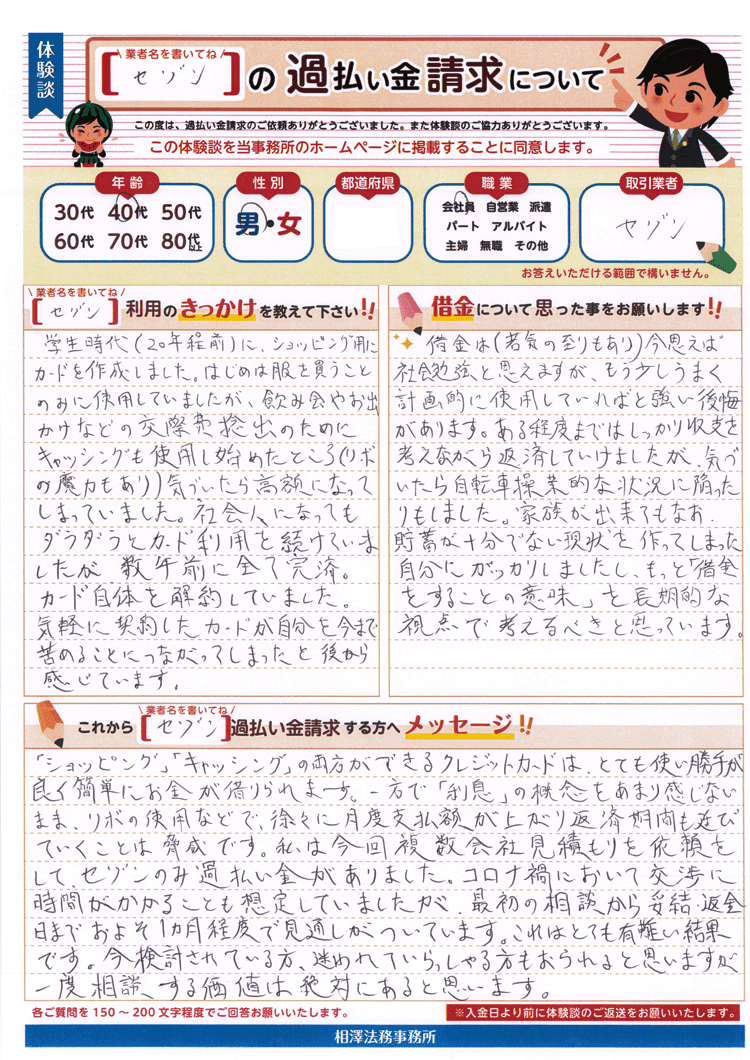 体験談
業者名を書いてね
[セゾン]の過払い金請求について
この度は、過払い金請求のご依頼ありがとうございました。また体験談のご協力ありがとうございます。
この体験談を当事務所のホームページに掲載することに同意します。
年齢
30代 40代 50代
60代 70代 80代以上
性別
男・女
都道府県
職業
会社員 自営業 派遣
パート アルバイト
主婦 無職 その他
取引業者
セゾン
お答えいただける範囲で構いません。
業者名を書いてね
[セゾン]利用のきっかけを教えて下さい!!
学生時代(20年程前)に、ショッピング用に
カードを作成しました。はじめは服を買うこと
のみに使用していましたが、飲み会やお出
かけなどの交際費捻出のために
キャッシングも使用し始めたところ(リボ
の魔力もあり)気づいたら高額になって
しまっていました。社会人になっても
ダラダラとカード利用を続けていま
したが数年前に全て完済。
カード自体を解約していました。
気軽に契約したカードが自分を今まで
苦めることにつながってしまったと後から
感じています。
借金について思った事をお願いします!!
借金は(若気の至りもあり)今思えば
社会勉強と思えますが、もう少しうまく
計画的に使用していればと強い後悔
があります。ある程度まではしっかり収支を
考えながら返済していけましたが、気づ
いたら自転車操業的な状況に陥った
りもしました。家族が出来てもなお、
貯蓄が十分でない現状を作ってしまった
自分にがっかりしましたし、もっと「借金
をすることの意味」を長期的な
視点で考えるべきと思っています。
業者名を書いてね
これから[セゾン]過払い金請求する方へメッセージ!!
「ショッピング」「キャッシング」の両方ができるクレジットカードは、とても使い勝手が
良く簡単にお金が借りられます。一方で「利息」の概念をあまり感じない
まま、リボの使用などで、徐々に月度支払額が上がり返済期間も延び
ていくことは脅威です。私は今回複数会社見積もりを依頼を
して、セゾンのみ過払い金がありました。コロナ禍において交渉に
時間がかかることも想定していましたが、最初の相談から妥結・返金
日までおよそ1カ月程度で見通しがついています。これはとても有難い結果
です。今検討されている方、迷われていらっしゃる方もおられると思いますが
一度相談、する価値は絶対にあると思います。
各ご質問を150〜200文字程度でご回答お願いいたします。
※入金日より前に体験談のご返送をお願いいたします。
相澤法務事務所